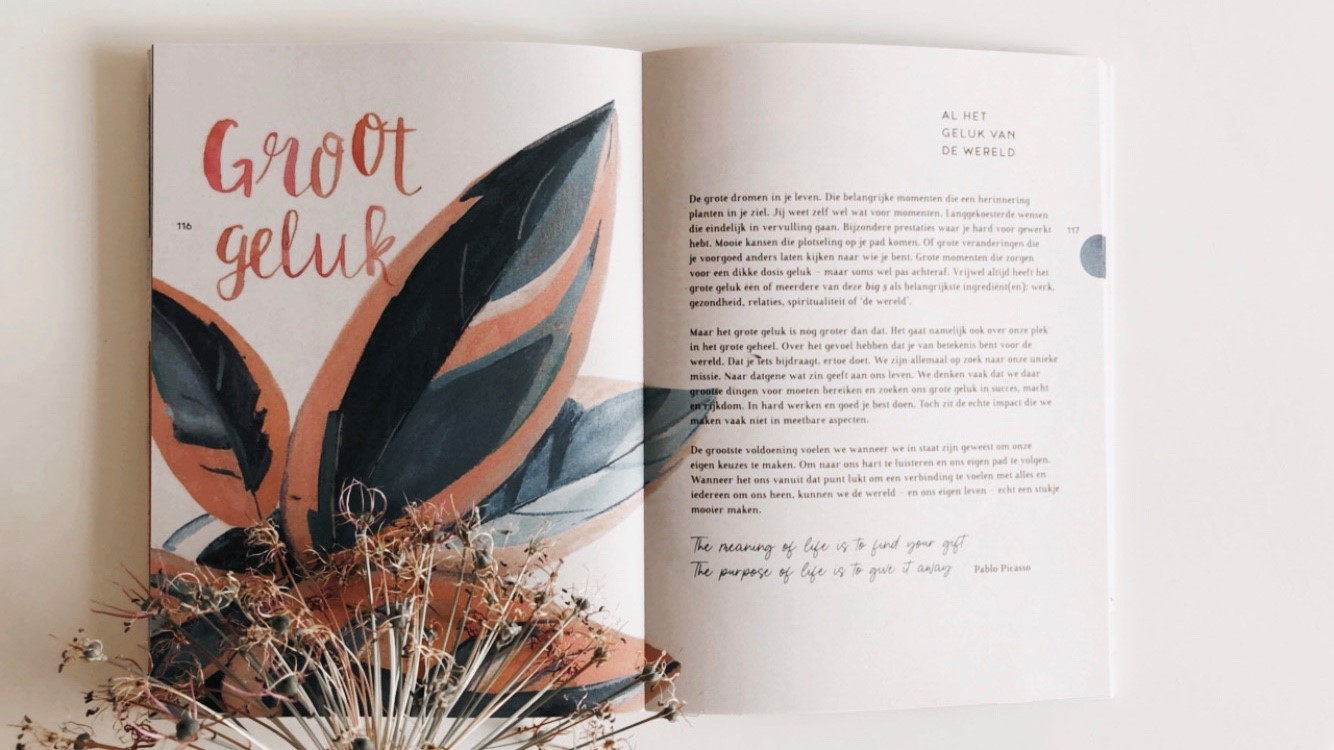 Groot
geluk
116
AL HET
GELUK VAN
DE WERELD
De grote dromen in je leven. Die belangrijke momenten die een herinnering
planten in je ziel. Jij weet zelf wel wat voor momenten. Langgekoesterde wensen
die eindelijk in vervulling gaan. Bijzondere prestaties waar je hard voor gewerkt
hebt. Mooie kansen die plotseling op je pad komen. Of grote veranderingen die
je voorgoed anders laten kijken naar wie je bent. Grote momenten die zorgen
voor een dikke dosis geluk – maar soms wel pas achteraf. Vrijwel altijd heeft het
grote geluk één of meerdere van deze big 5 als belangrijkste ingrediënt(en): werk,
gezondheid, relaties, spiritualiteit of ‘de wereld’.
117
Maar het grote geluk is nog groter dan dat. Het gaat namelijk ook over onze plek
in het grote geheel. Over het gevoel hebben dat je van betekenis bent voor de
wereld. Dat je iets bijdraagt, ertoe doet. We zijn allemaal op zoek naar onze unieke
missie. Naar datgene wat zin geeft aan ons leven. We denken vaak dat we daar
grootse dingen voor moeten bereiken en zoeken ons grote geluk in succes, macht
en rijkdom. In hard werken en goed je best doen. Toch zit de echte impact die we
maken vaak niet in meetbare aspecten.
De grootste voldoening voelen we wanneer we in staat zijn geweest om onze
eigen keuzes te maken. Om naar ons hart te luisteren en ons eigen pad te volgen.
Wanneer het ons vanuit dat punt lukt om een verbinding te voelen met alles en
iedereen om ons heen, kunnen we de wereld – en ons eigen leven – echt een stukje
mooier maken.
The meaning of life is to find your gift
The purpose of life is to give it away Pablo Picasso